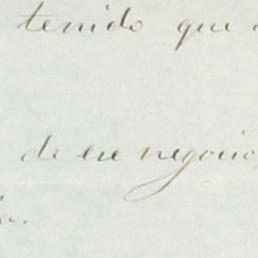 tenido que
de ese negocio,